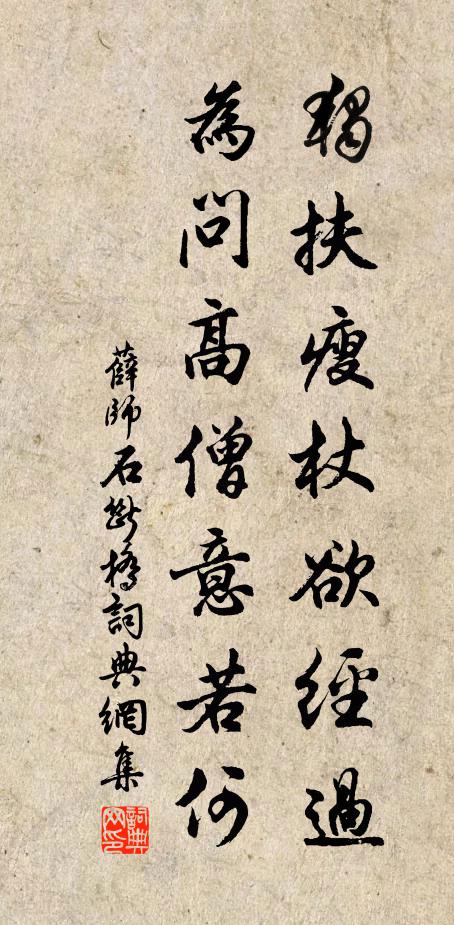 獨扶瘦杖欲經過
為問高僧意若何
薛師石斷橋詞典網集
詞典網印